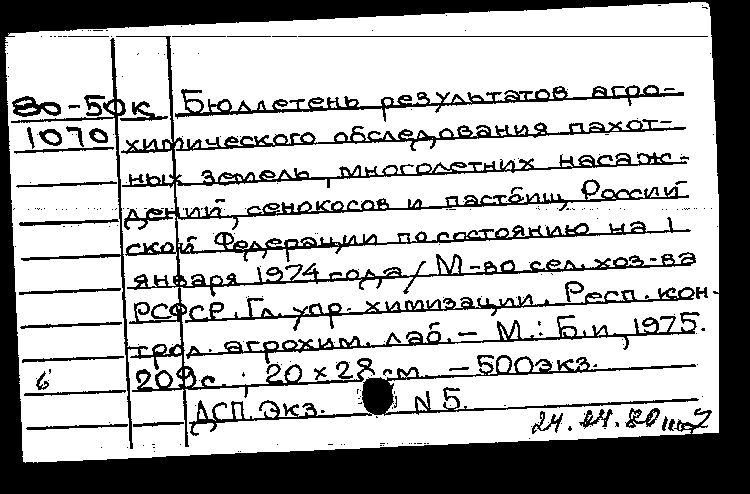 80-50к Бюллетень результатов агро-
1070 химического обследования пахот-
ных земель, многолетних насаж-
дений, сенокосов и пастбищ, Россий
ской Федерации по состоянию на 1
января 1974 года / М-во сел. хоз-ва
РСФСР. Гл. упр. химизации. Респ. кон-
трол. агрохим. лаб. – М.: Б.и., 1975.
6 209 с. ; 20 x 28 см. – 500 экз.
ДСП. Экз. N 5.
24.04.80